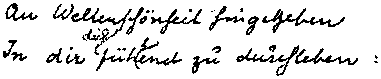 An Weltenschönheit hingegeben
In dir dich fühlend zu durchleben: